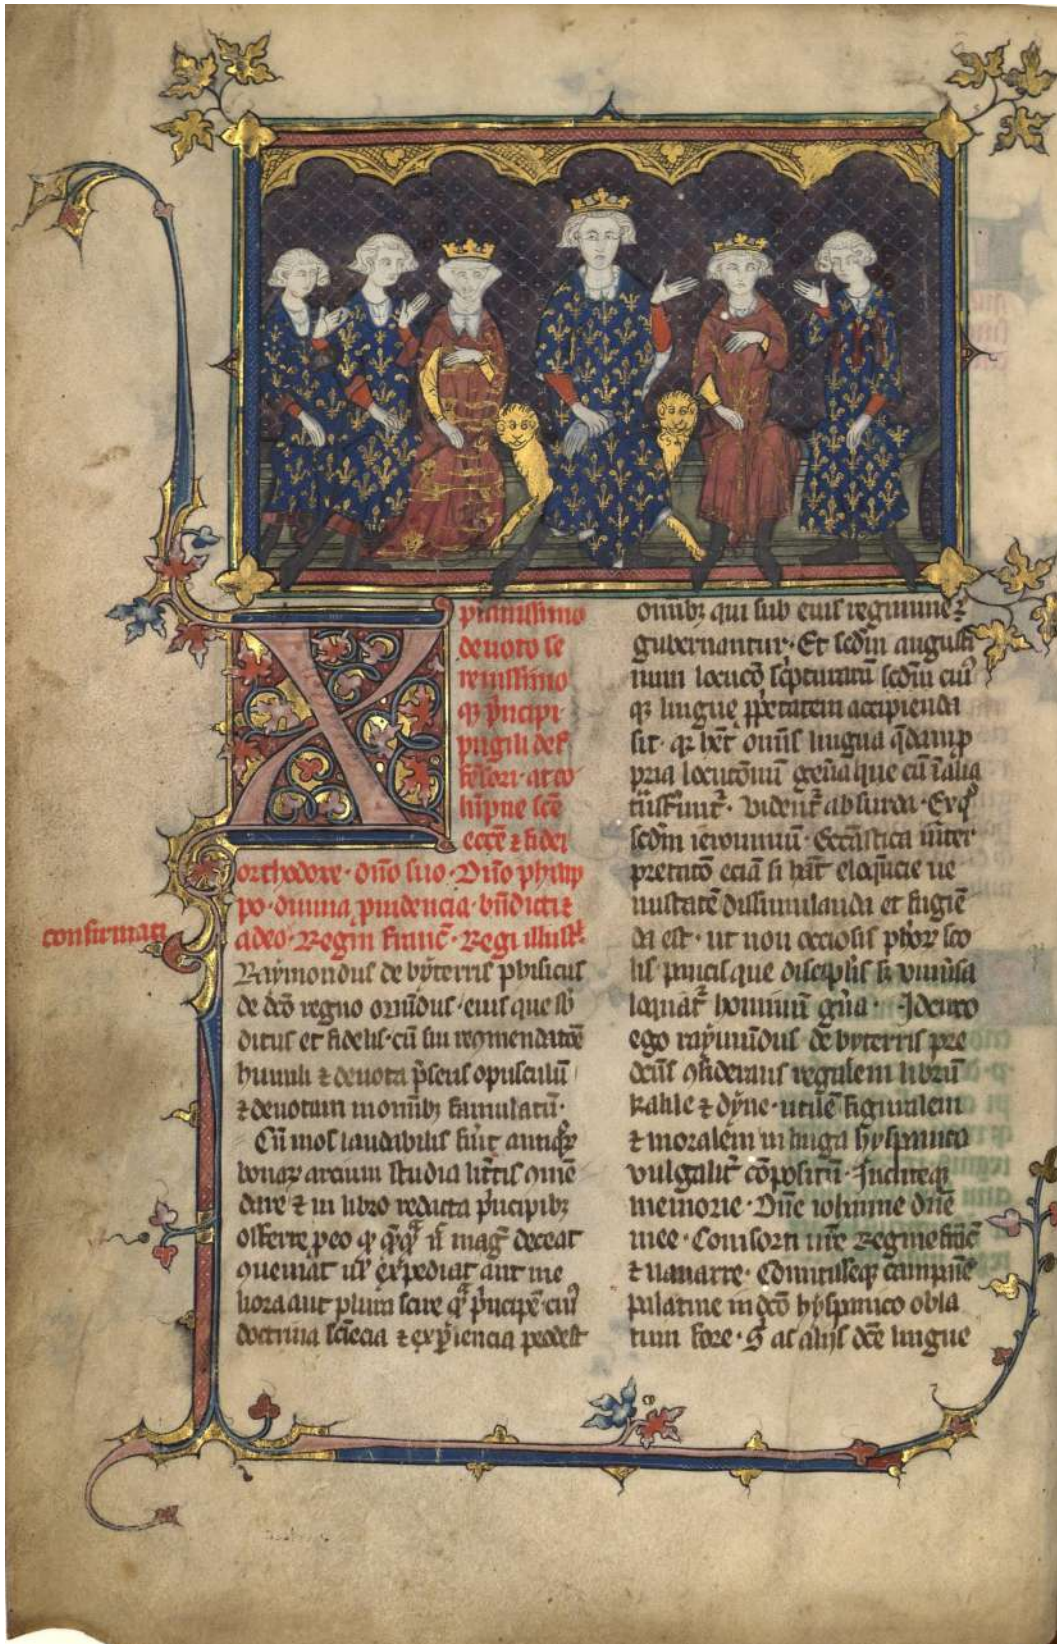 X
pianissimo
deuoto se
renissimo
q; p̾ncipi
pugili def
fēsori · ac co
lūpne scē
ecc̄e ⁊ fidei
orthodoxe · dn̄o suo · Dn̄o philip
po · diuina p̱uidencia · bn̄dictie
confirmati
adeo · Regni franc̄ · Regi illusť ·
Raymondus de byterris phisicus
de dc̄o regno oriūdus · eius que sb̄
ditus et fidelis · cū sui recomendac̄oē
humili ⁊ deuota p̄sens opusculū
⁊ deuotum in omīb; famulatū ·
Cū mos laudabilis fūit antiq̱
bonaꝝ arcium studia litt̄is ꝯmē
dare ⁊ in libro redacta p̾ncipib;
offerre p̱eo
deceat
aut me
liora aut plura scire q̄ p̾ncipē · cuiꝰ
doctrina sciēcia ⁊ exp̱iencia prodest
omīb; qui sub eius regimine ⁊
gubernantur · Et sc̄dm augusti
num locuc̄o sc̾pturarū sc̄dm cuiꝰ
q; lingue p̱p̾etatem accipienda
sit · q̱ hēt om̄is lingua q̄dam p̱
pria locuc̄onū geña que cū ī alia
trāsfūnt̾ · vident̾ absurda · Et
sc̄dm ieronimū · Ecc̄astica īnter
pretac̄o eciā si hēt eloq̄ncie ve
nustatē dissimulanda et fugiē
da est · ut non occiosis ph̄oꝝ sco
lis paucisque discip̱lis s; vniūsa
loquat̾ hominū gn̄a · Idcirco
ego raymūdus de byterris pre
dc̄us ꝯsiderans regalem librū
kalile ⁊ dyne · utilē figuralem
⁊ moralem in linga hyspanica
vulgalit̾ cōpositū · Incliteq;
memorie · Dn̄e iohanne dn̄e
mee · Consorti vr̄e Regine franc̄
⁊ nauarre · Comitisseq; campan̄e
palatine in dc̄o hyspanico obla
tum fore · S; ac aliis dc̄e lingue